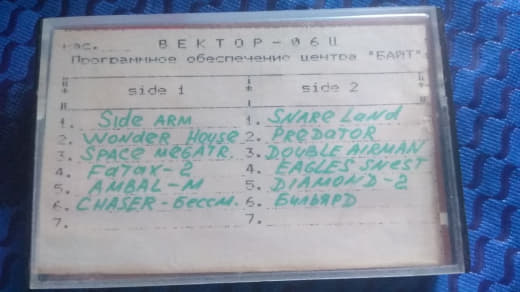 кас. ВЕКТОР-06Ц
Программное обеспечение центра "БАЙТ"
side 1 side 2
1. Side ARM 1. SNARE Land
2. Wonder House 2. PREDATOR
3. SPACE MEGATR. 3. DOUBLE AIRMAN
4. Fatax-2 4. EAGLES SNEST
5. AMBAL-M 5. DIAMOND-2
6. CHASER-Бессм. 6. Бильярд
7. 7.